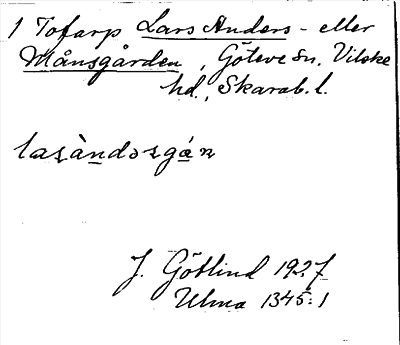 1 Tofarp Lars Anders- eller
Månsgården, Göteve sn, Vilske
hd., Skarab. l.
lasàndəsgán
J. Götlind 1927
Ulma 1345:1